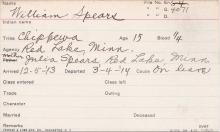 Name File No.
William Spears 4071
Indian name
Tribe Chippewa Age 15 Blood 1/4
Agency Red Lake, Minn.
Parent Julia Spears, Red Lake, Minn.
Arrived 12-5-13 Departed 3-4-14 Cause On leave
Class entered Class left
Trade Outing
Character
Married
Deceased
Remarks